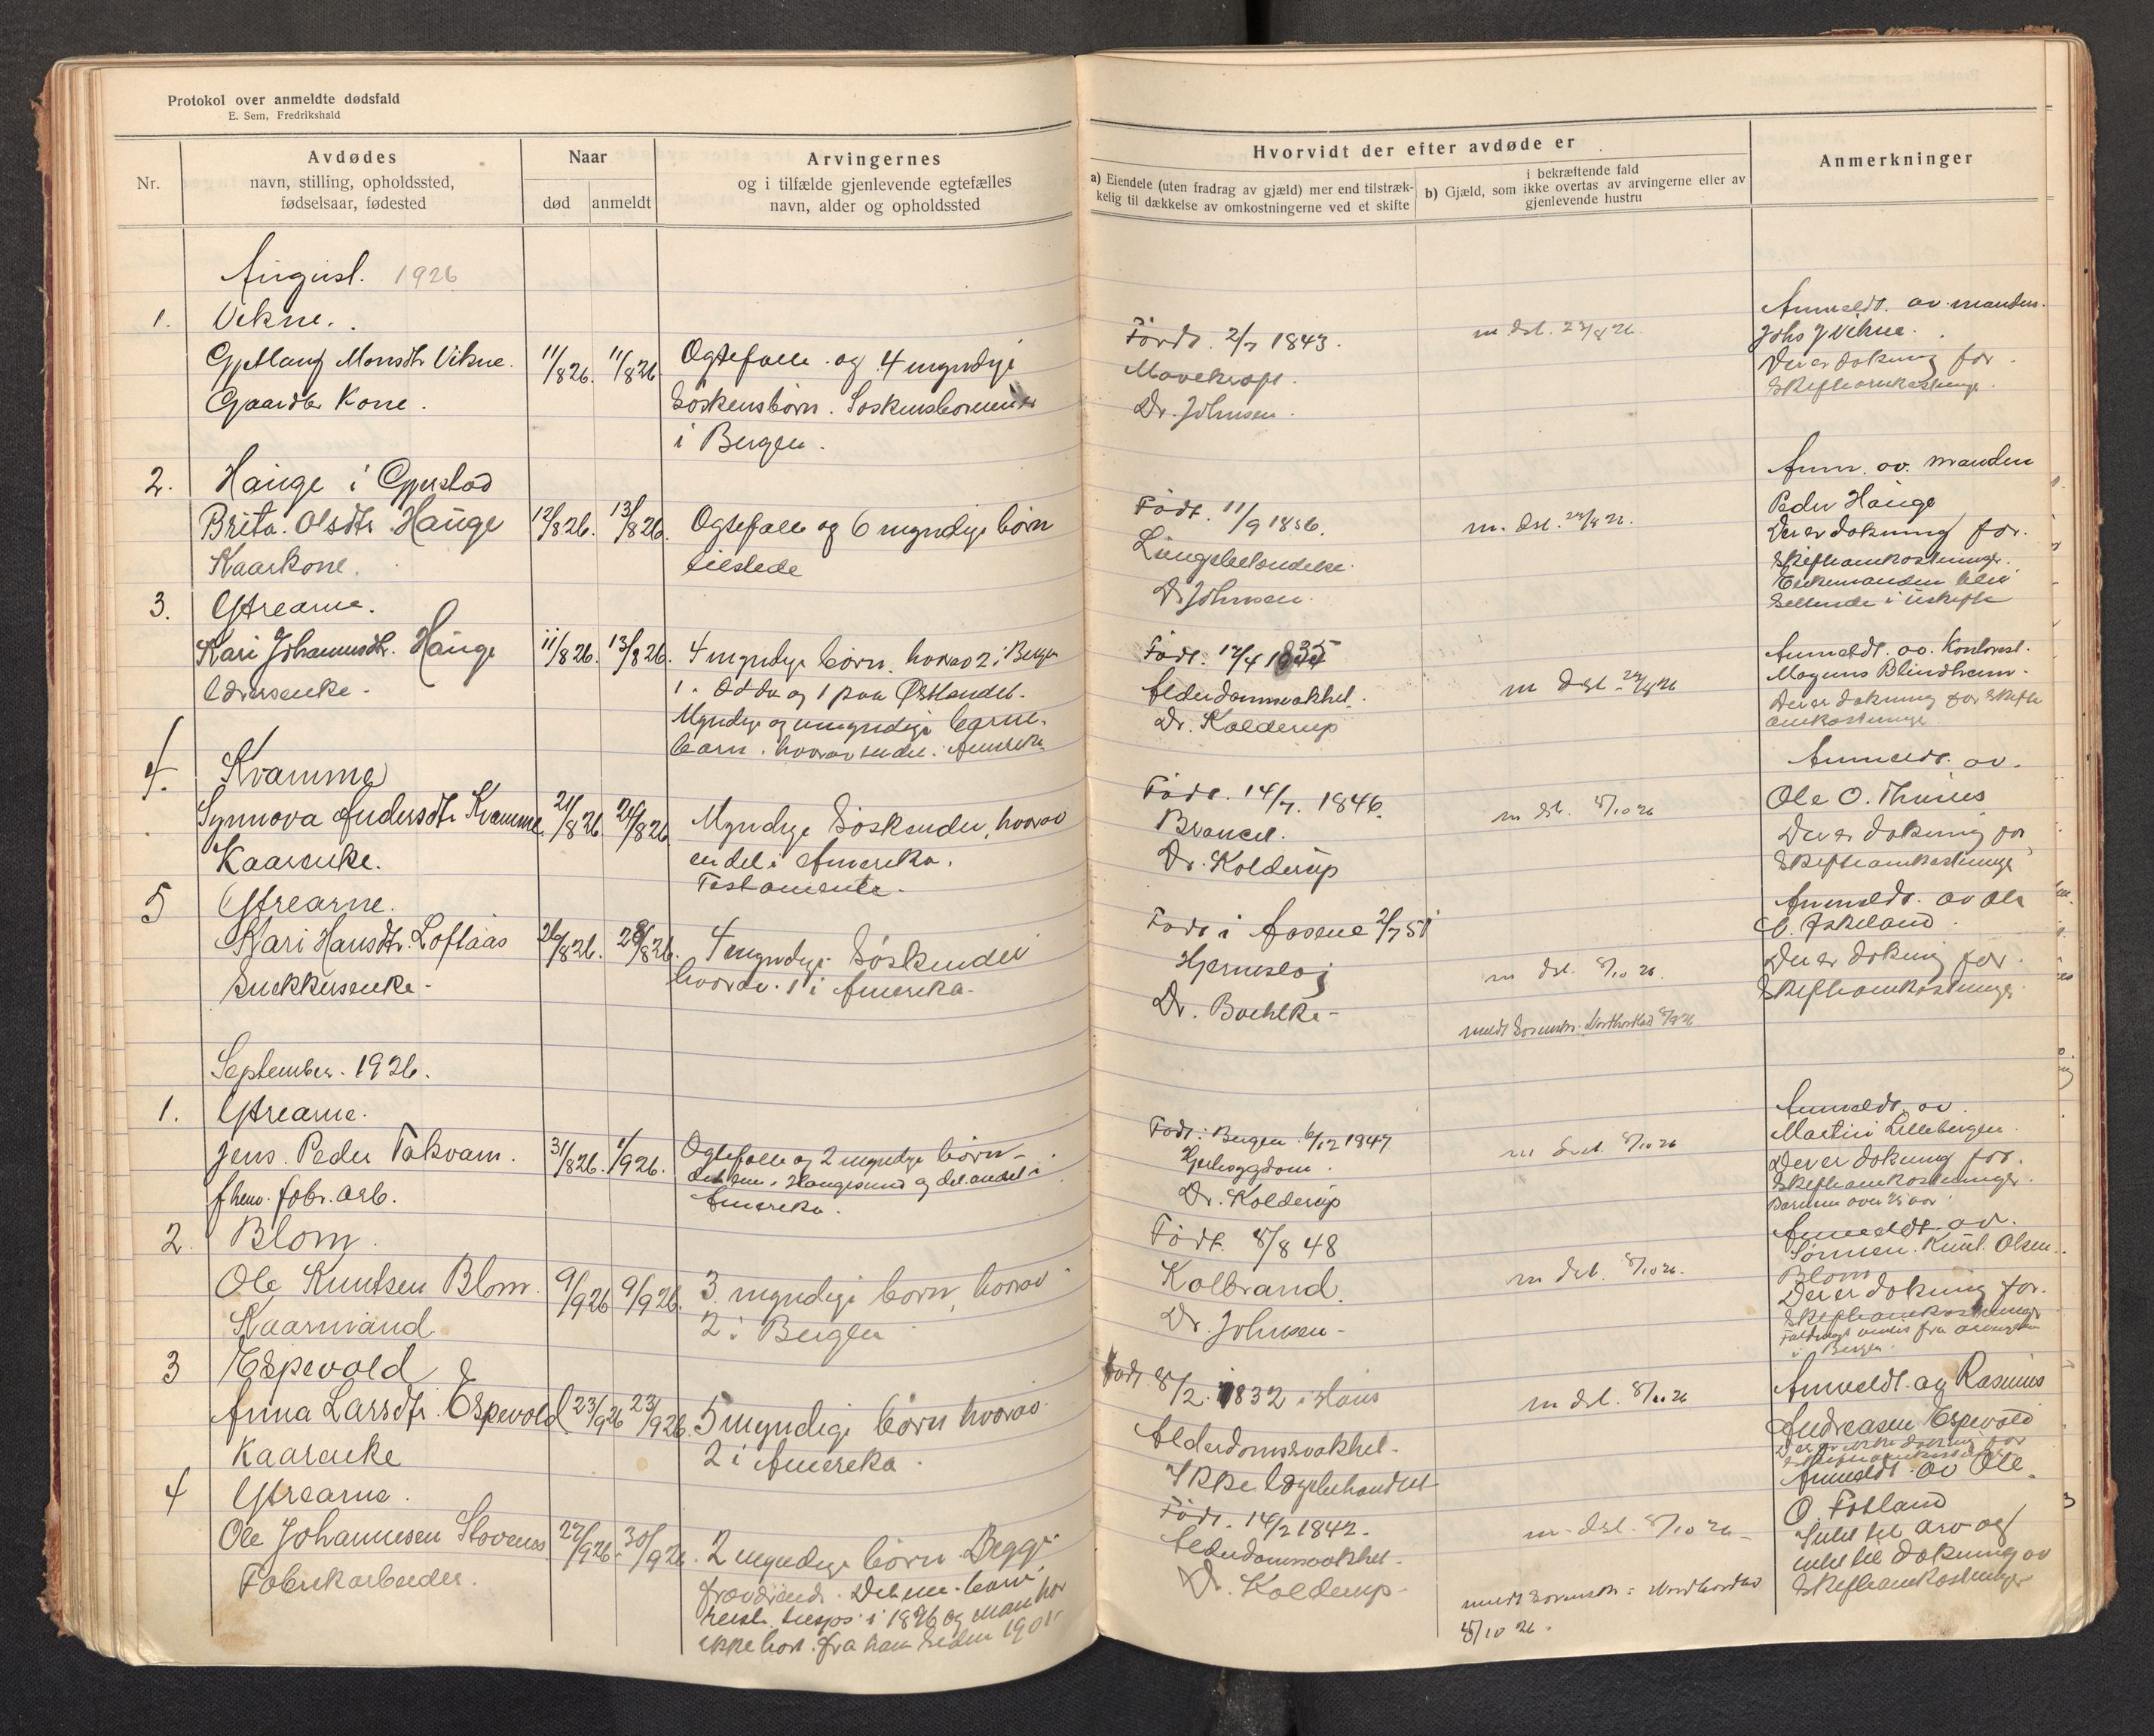 Protokol over anmeldte dødsfald
E. Sem, Fredrikshald
Nr.
Avdødes
navn, stilling, opholdssted,
fødselsaar, fødested
Naar
død anmeldt
Arvingernes
og i tilfælde gjenlevende egtefælles
navn, alder og opholdssted
Hvorvidt der efter avdøde er
a) Eiendele (uten fradrag av gjæld) mer end tilstræk-
kelig til dækkelse av omkostningerne ved et skifte
i bekræftende fald
b) Gjæld, som ikke overtas av arvingerne eller av
gjenlevende hustru
Anmerkninger
August. 1926
1. Vikne.
Monsdtr Vikne. 11/8 26. 11/8 26
Gaardbr Kone.
Ogtefolle og 4 myndige
Söskensbörn. Soskensbornene
i Bergen.
Födt. 2/7 1843.
Mavekræft.
Dr. Johnsen.
m dsl. 23/8 26.
Anmeldt. av manden
Johs J Vikne.
Der er dækning for
Skifteomkostninger.
2. Hauge i Gjerstad
Brita Olsdtr Hauge 12/8 26. 13/8 26.
Kaarkone.
Ogtefolle og 6 myndige börn
tilstede
Födt. 11/9 1856.
Lungebetændelse.
Dr Johnsen.
m. dsl. 23/8 26.
Anm. av. manden
Peder Hauge
Der er dækning for.
Skifteomkostninger.
Enkemanden blir
sittende i uskifte
3. Ytrearne.
Kari Johannesdtr. Hauge 11/8 26. 13/8 26.
4 myndige börn, horav 2 i Bergen
1 i Odda og 1 paa Østlandet.
Myndige og umyndige barne-
barn. hvorav endel i Amerika
Födt. 12/4 1835
Alderdomssvakhet.
Dr. Kolderup
m dsl. 23/8 26
Anmeldt. av. Kontorist.
Magnus Blindheim.
Der er dækning for Skifte
omkostninger.
4. Kvamme
Synnøva Andersdtr Kvamme 21/8 26. 24/8 26
Kaarenke.
Myndige Söskender, hvorav
en del i Amerika.
Testamente.
Födt. 14/7. 1846.
Dr. Kolderup
m dsl. 8/10 26
Anmeldt. av.
Ole O. Thunes
Der er dækning for
Skifteomkostninger
5 Ytrearne.
Kari Hansdtr. Loftaas 26/8 26. 28/8 26.
Snekkerenke.
4 myndige Söskender
hvorav 1 i Amerika.
Födt i Aasene 2/7 51
Hjerneslag
Dr. Boehlke
m dsl. 8/10 26.
Anmeldt. av Ole
Der er dækning for.
Skifteomkostninger
September. 1926.
1. Ytrearne.
Jens. Peder Takvam. 31/8 26. 1/9 26.
fhenv. fabr. arb.
Ogtefolle og 2 myndige börn
det ene i Haugesund og det andet i
Amerika.
Födt i Bergen 6/12 1847
Dr. Kolderup
m dsl. 8/10 26
Anmeldt av.
Martin Lillebergen.
Der er dækning for.
Skifteomkostninger.
2. Blom.
Ole Knutsen Blom. 9/9 26 9/9 26.
Kaarmand
3 myndige börn, horav
2 i Bergen
Födt. 8/8 48
Kolbrand.
Dr. Johnsen
m dsl. 8/10 26.
Anmeldt. av.
Sönnen. Knut. Olsen.
Blom
Der er dækning for.
Skifteomkostninger
i Bergen.
3 Espevold
Anna Larsdtr. Espevold 23/9 26 23/9 26.
Kaarenke
5 myndige börn hvorav
2 i Amerika.
Födt. 8/2. 1832 i Haus
Alderdomssvakhet.
Ikke lægebehandlet
m dsl. 8/10 26
Anmeldt. av Rasmus
Andreasen Espevold
Der er ikke dækning for
Skifteomkostninger
4 Ytrearne.
Ole Johannesen 27/9 26. 30/9 26.
Fabrikarbeider.
2 myndige börn. Begge
fraværende. Det ene barn
reiste tilsjös i 1896 og man har
ikke hört fra ham siden 1901
Födt. 14/2 1842.
Alderdomssvakhet.
Dr. Kolderup
m. dsl. 8/10 26
8/10 26.
Anmeldt av Ole.
O. Fotland
Intet til arv og
intet til dækning av
Skifteomkostninger